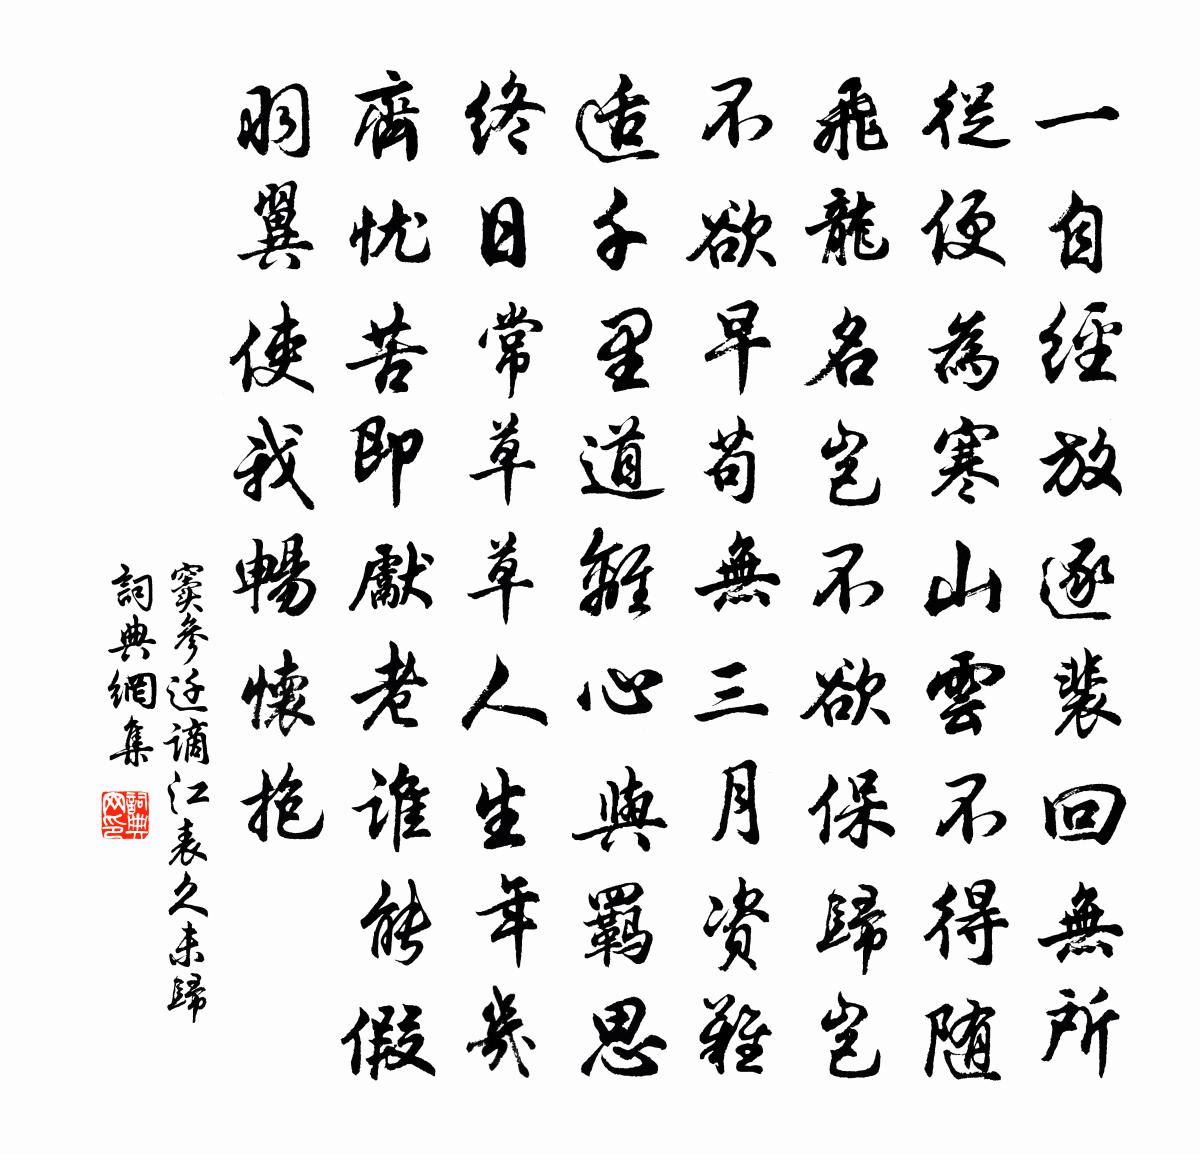 一自經放逐裴回無所
從便為寒山雲不得随
飛龍名豈不欲保歸豈
不欲早苟無三月资難
适千里道離心與羈思
終日常草草人生年幾
齊忧苦即獻老谁能假
羽翼使我暢懷抱
窦參迁谪江表久未歸
詞典網集
詞典网印